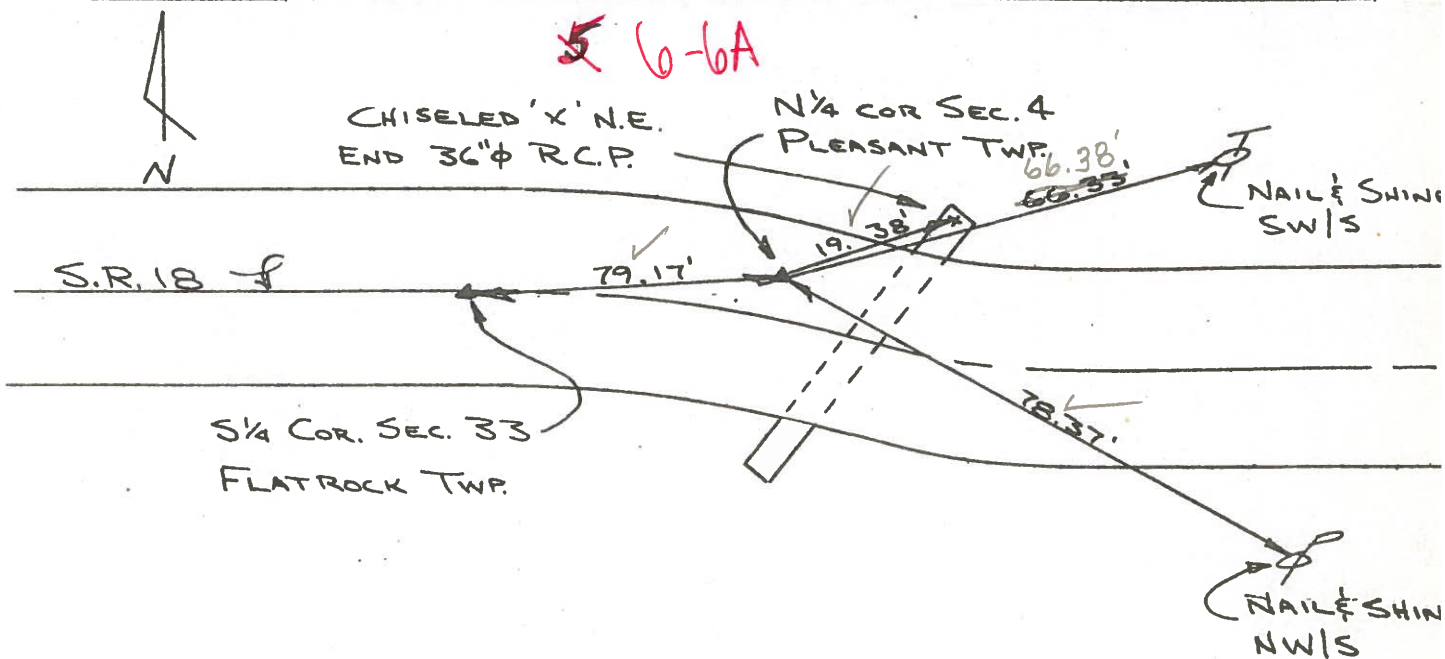 5 6-6A
CHISELED 'X' N.E.
END 36"φ R.C.P.
N¼ COR SEC. 4
PLEASANT TWP.
66.38'
66.33'
NAIL & SHINE
SW/S
N
19.38'
79.17'
S.R. 18
78.37'
S¼ COR. SEC. 33
FLATROCK TWP.
NAIL & SHIN
NW/S